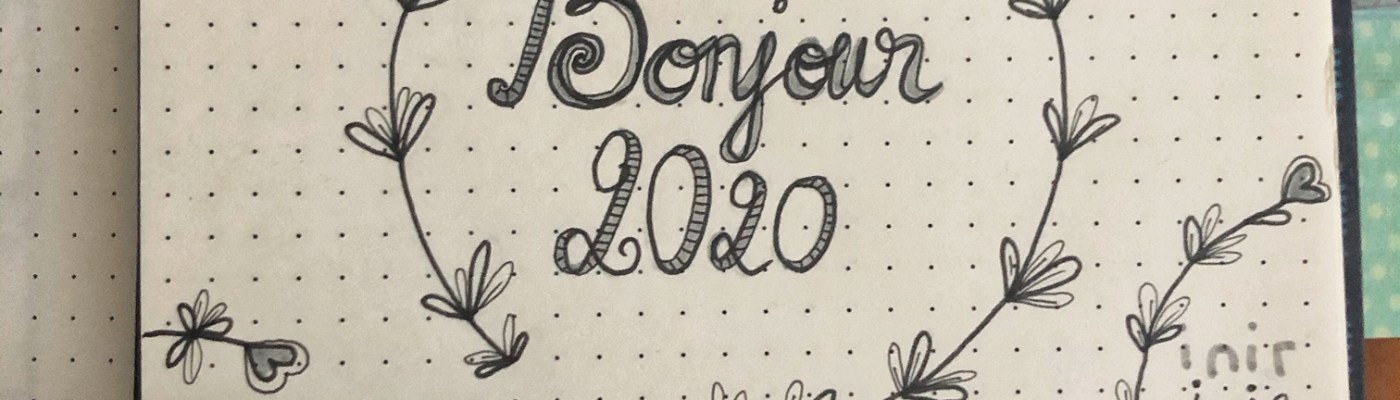 Bonjour
2020